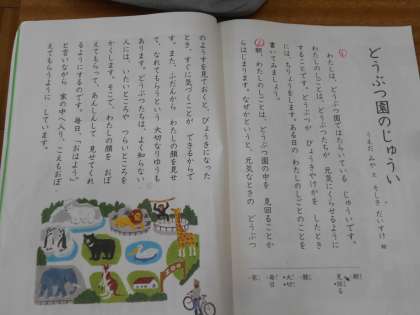 どうぶつ園のじゅうい
うえだ みや 文
わたしは、どうぶつ園ではたらいている じゅういです。
わたしのしごとは、どうぶつたちが 元気にくらせるように
することです。どうぶつが びょうきやけがを したとき
には、ちりょうをします。ある日の わたしのしごとのことを
書いてみましょう。
朝、わたしのしごとは、どうぶつ園の中を 見回ることか
らはじまります。なぜかというと、元気なときの どうぶつ
のようすを見ておくと、びょうきになった
とき、すぐに気づくことが できるからで
す。また、ふだんから わたしの顔を見せ
て、なれてもらうという 大切なりゆうも
あります。どうぶつたちは、よく知らない
人には、いたいところや つらいところを
かくします。そこで、わたしの顔を おぼ
えてもらって、あんしんして 見せてくれ
るようにするのです。毎日、「おはよう。」
と言いながら 家の中へ入り、こえもおぼ
えてもらうように しています。
朝
見回る
顔
大切
毎日
家